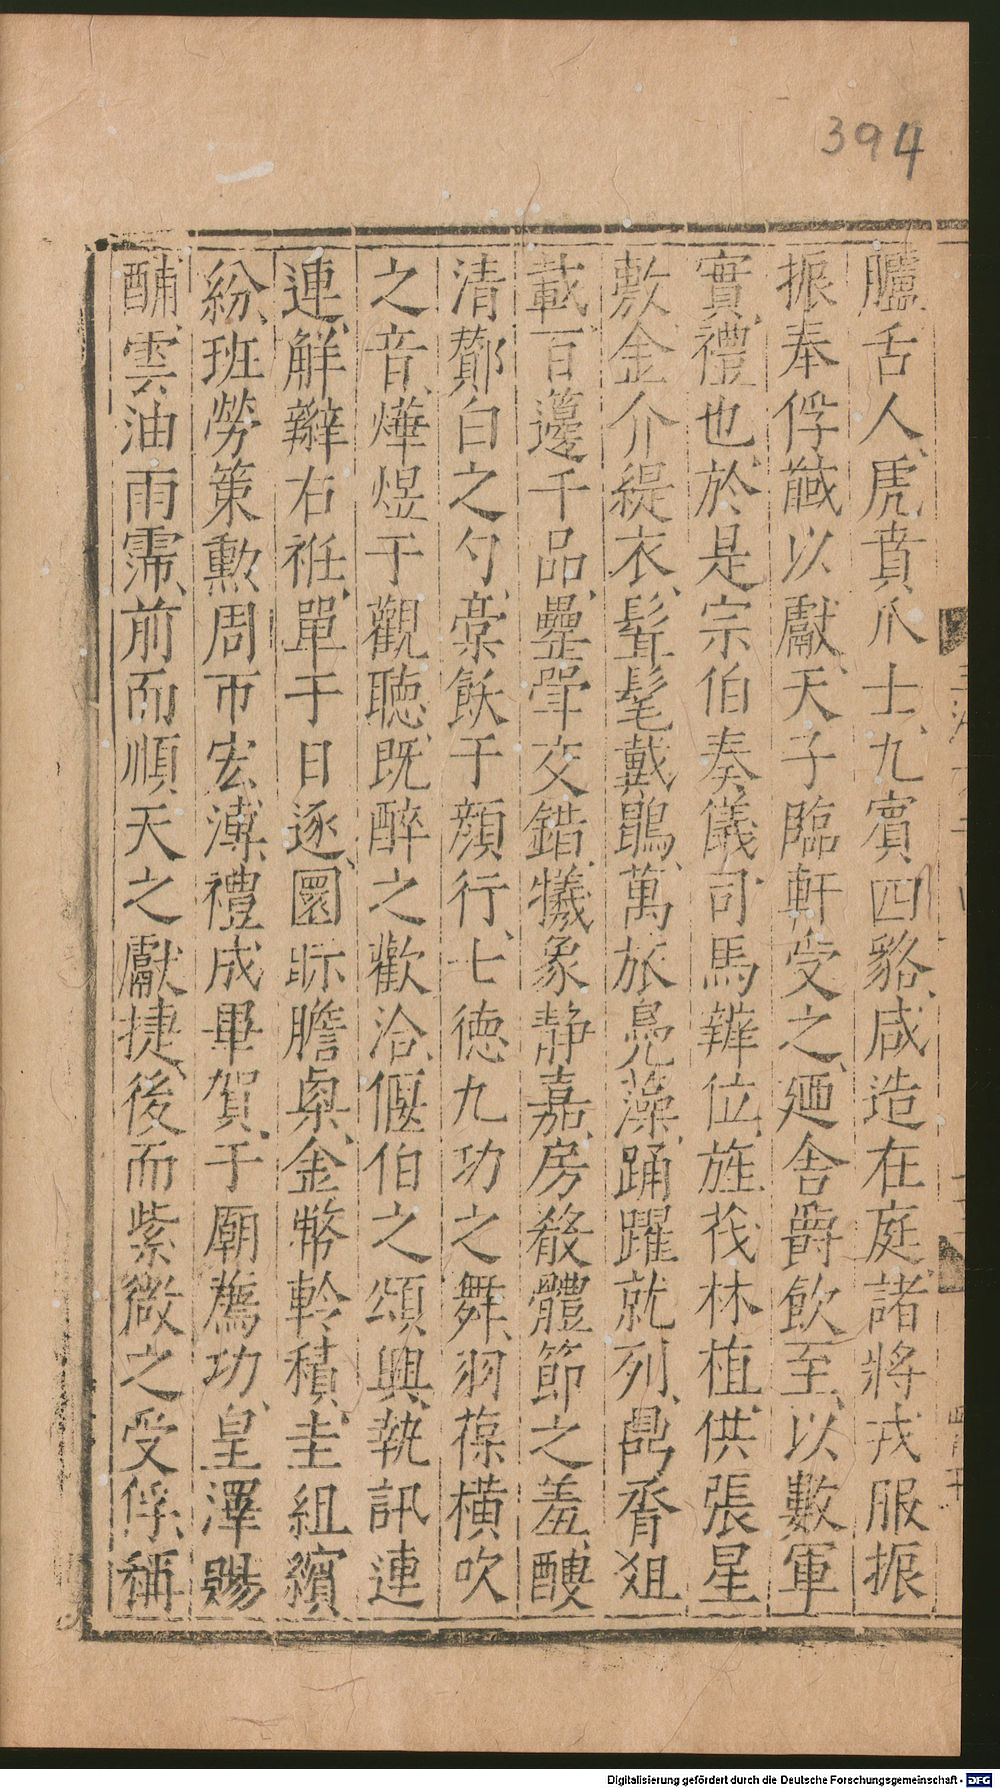 394
臚舌人虎賁爪士九賓四貉咸造在庭諸將戎服振
振奉俘馘以獻天子臨軒受之廼舍爵飲至以數軍
實禮也於是宗伯奏儀司馬辨位旌茷林植供張星
敷金介緹衣髶髦戴鶡萬旅鳧藻踊躍就列鼎胥俎
載百籩千品罍斝交錯犧象靜嘉房殽體節之羞醙
清酇白之勺槀飫于顏行七德九功之舞羽葆橫吹
之音燁煜于觀聽既醉之歡洽偃伯之頌興執訊連
連觧辮右袵單于日逐圜眎膽㮚金幣軡積圭組繽
紛班勞策勲周帀宏溥禮成畢賀于廟薦功皇澤賜
酺雲油雨霈前而順天之獻捷後而紫微之受俘稱
Digitalisierung gefördert durch die Deutsche Forschungsgemeinschaft - DFG